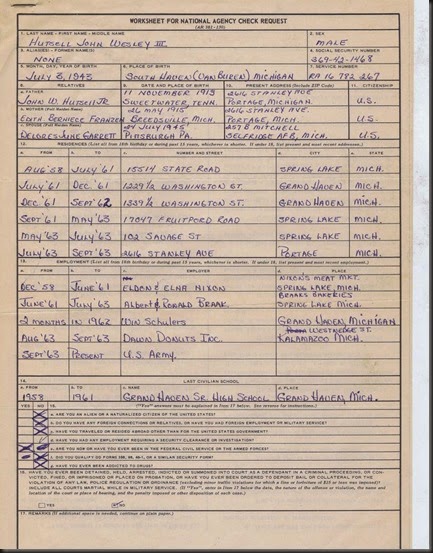 WORKSHEET FOR NATIONAL AGENCY CHECK REQUEST
(AR 381-130)
1. LAST NAME - FIRST NAME - MIDDLE NAME
2. SEX
Hutsell John Wesley III
MALE
3. ALIAS(ES) - FORMER NAME(S)
4. SOCIAL SECURITY NUMBER
NONE
369-42-1468
5. MONTH, DAY, YEAR OF BIRTH
6. PLACE OF BIRTH
7. SERVICE NUMBER
July 3, 1943
South Haven (Van Buren) Michigan
RA 16 782 267
8. RELATIVES
9. DATE AND PLACE OF BIRTH
10. PRESENT ADDRESS (Include ZIP Code)
11. CITIZENSHIP
a. FATHER
11 November 1913
2616 Stanley Ave
John W. Hutsell Jr.
Sweetwater, Tenn.
Portage, Michigan
U.S.
b. MOTHER (Full Maiden Name)
26 May 1915
2616 Stanley Ave.
Edith Berniece Franzen
Breedsville, Mich.
Portage, Mich.
U.S.
c. SPOUSE (Full Maiden Name)
24 July 1945
257 B Mitchell
Delores June Garrett
Pittsburgh Pa.
Selfridge AFB, Mich.
U.S.
12. RESIDENCES
a. FROM
b. TO
c. NUMBER AND STREET
d. CITY
e. STATE
Aug '58 July '61 15514 State Road Spring Lake Mich.
July '61 Dec. '61 1229 1/2 Washington St. Grand Haven Mich.
Dec. '61 Sept '62 1339 1/2 Washington St. Grand Haven Mich.
Sept '61 May '63 17047 Fruitport Road Spring Lake Mich.
May '63 July '63 102 Savage St Spring Lake Mich.
July '63 Sept '63 2616 Stanley Ave Portage Mich.
13. EMPLOYMENT
a. FROM
b. TO
c. EMPLOYER
d. PLACE
Nixon's Meat Mkt.
Dec '58 June '61 Eldon & Elna Nixon Spring Lake, Mich.
Braaks Bakeries
June '61 July '63 Albert & Ronald Braak. Spring Lake Mich.
2 months in 1962 Win Schulers Grand Haven, Michigan
Westnedge St.
Aug '63 Sept '63 Dawn Donuts Inc. Kalamazoo Mich.
Sept '63 Present U.S. Army.
14. LAST CIVILIAN SCHOOL
a. FROM
b. TO
c. NAME
d. PLACE
1958 1961 Grand Haven Sr. High School Grand Haven, Mich.
YES NO 15. ("Yes" answers must be explained in Item 17 below. See reverse for instructions.)
a. ARE YOU AN ALIEN OR A NATURALIZED CITIZEN OF THE UNITED STATES?
b. DO YOU HAVE ANY FOREIGN CONNECTIONS OR RELATIVES, OR HAVE YOU HAD FOREIGN EMPLOYMENT OR MILITARY SERVICE?
c. HAVE YOU TRAVELED OR RESIDED ABROAD OTHER THAN FOR THE UNITED STATES GOVERNMENT?
d. HAVE YOU HAD ANY EMPLOYMENT REQUIRING A SECURITY CLEARANCE OR INVESTIGATION?
e. ARE YOU NOW OR HAVE YOU EVER BEEN IN THE FEDERAL CIVIL SERVICE OR THE ARMED FORCES?
g. HAVE YOU EVER BEEN ADDICTED TO DRUGS?
16. HAVE YOU EVER BEEN DETAINED, HELD, ARRESTED, INDICTED OR SUMMONED INTO COURT AS A DEFENDANT IN A CRIMINAL PROCEEDING, OR CON-
VICTED, FINED, OR IMPRISONED OR PLACED ON PROBATION, OR HAVE YOU EVER BEEN ORDERED TO DEPOSIT BAIL OR COLLATERAL FOR THE
VIOLATION OF ANY LAW, POLICE REGULATION OR ORDINANCE (excluding minor traffic violations for which a fine or forfeiture of $25 or less was imposed)?
INCLUDE ALL COURTS MARTIAL WHILE IN MILITARY SERVICE. (If "Yes", enter in Item 17 below, the date, the nature of the offense or violation, the name and
location of the court or place of hearing, and the penalty imposed or other disposition of each case.)
YES NO
17. REMARKS (If additional space is needed, continue on plain paper.)